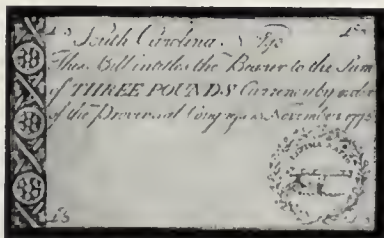 South Carolina. No
This Bill intitles the Bearer to the Sum
of THREE POUNDS Currency by order
of the Provincial Congress November 1775
ULTIMA RATIO